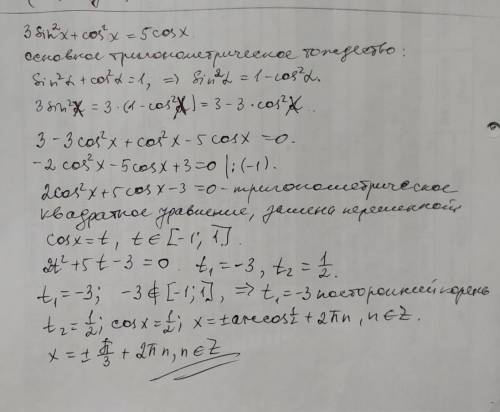 3 sin²x + cos²x = 5cosx
основное тригонометрическое тождество:
sin²α + cos²α = 1, ⇒ sin²α = 1 - cos²α.
3 sin²x = 3·(1 - cos²x) = 3 - 3·cos²x.
3 - 3cos²x + cos²x - 5cosx = 0.
-2 cos²x - 5cosx + 3 = 0 |:(-1).
2cos²x + 5cosx - 3 = 0 - тригонометрическое
квадратное уравнение, замена переменной
cosx = t, t ∈ [-1; 1].
2t² + 5t - 3 = 0. t₁ = -3, t₂ = 1/2.
t₁ = -3; -3 ∉ [-1; 1], ⇒ t₁ = -3 посторонний корень
t₂ = 1/2; cosx = 1/2; x = ± arccos 1/2 + 2πn, n ∈ Z.
x = ± π/3 + 2πn, n ∈ Z